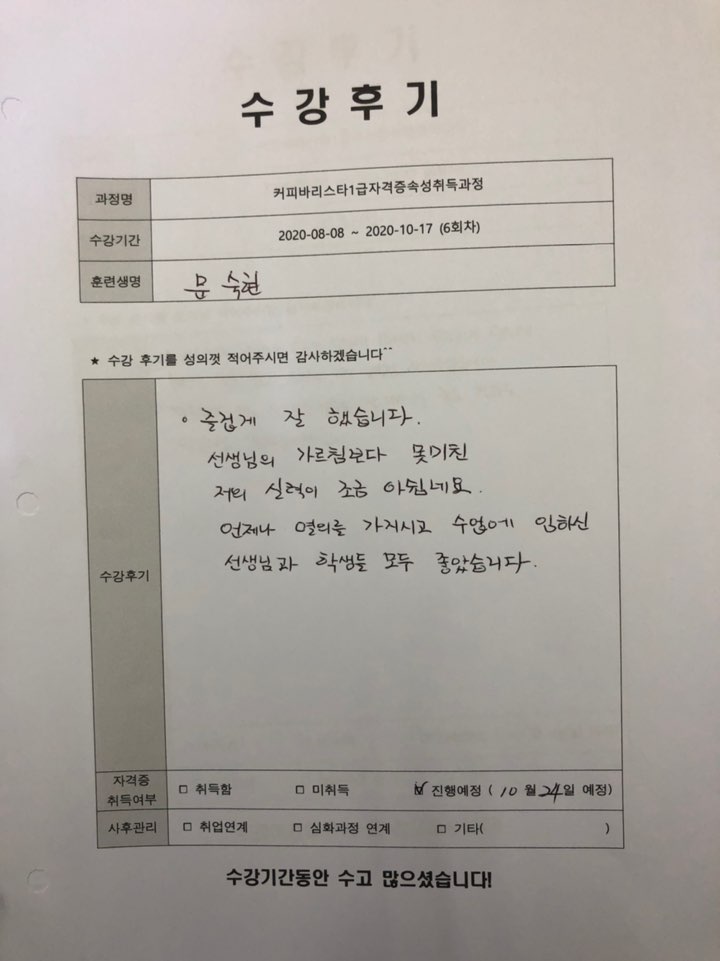 수 강 후 기
과정명 커피바리스타1급자격증속성취득과정
수강기간 2020-08-08 ~ 2020-10-17 (6회차)
훈련생명 문 숙현
★ 수강 후기를 성의껏 적어주시면 감사하겠습니다^^
◦ 즐겁게 잘 했습니다.
선생님의 가르침보다 못미친
저의 실력이 조금 아쉽네요.
언제나 열의를 가지시고 수업에 임하신
선생님과 학생들 모두 좋았습니다.
수강후기
자격증
취득여부 □ 취득함 □ 미취득 ☑ 진행예정 ( 10 월 24일 예정)
사후관리 □ 취업연계 □ 심화과정 연계 □ 기타( )
수강기간동안 수고 많으셨습니다!